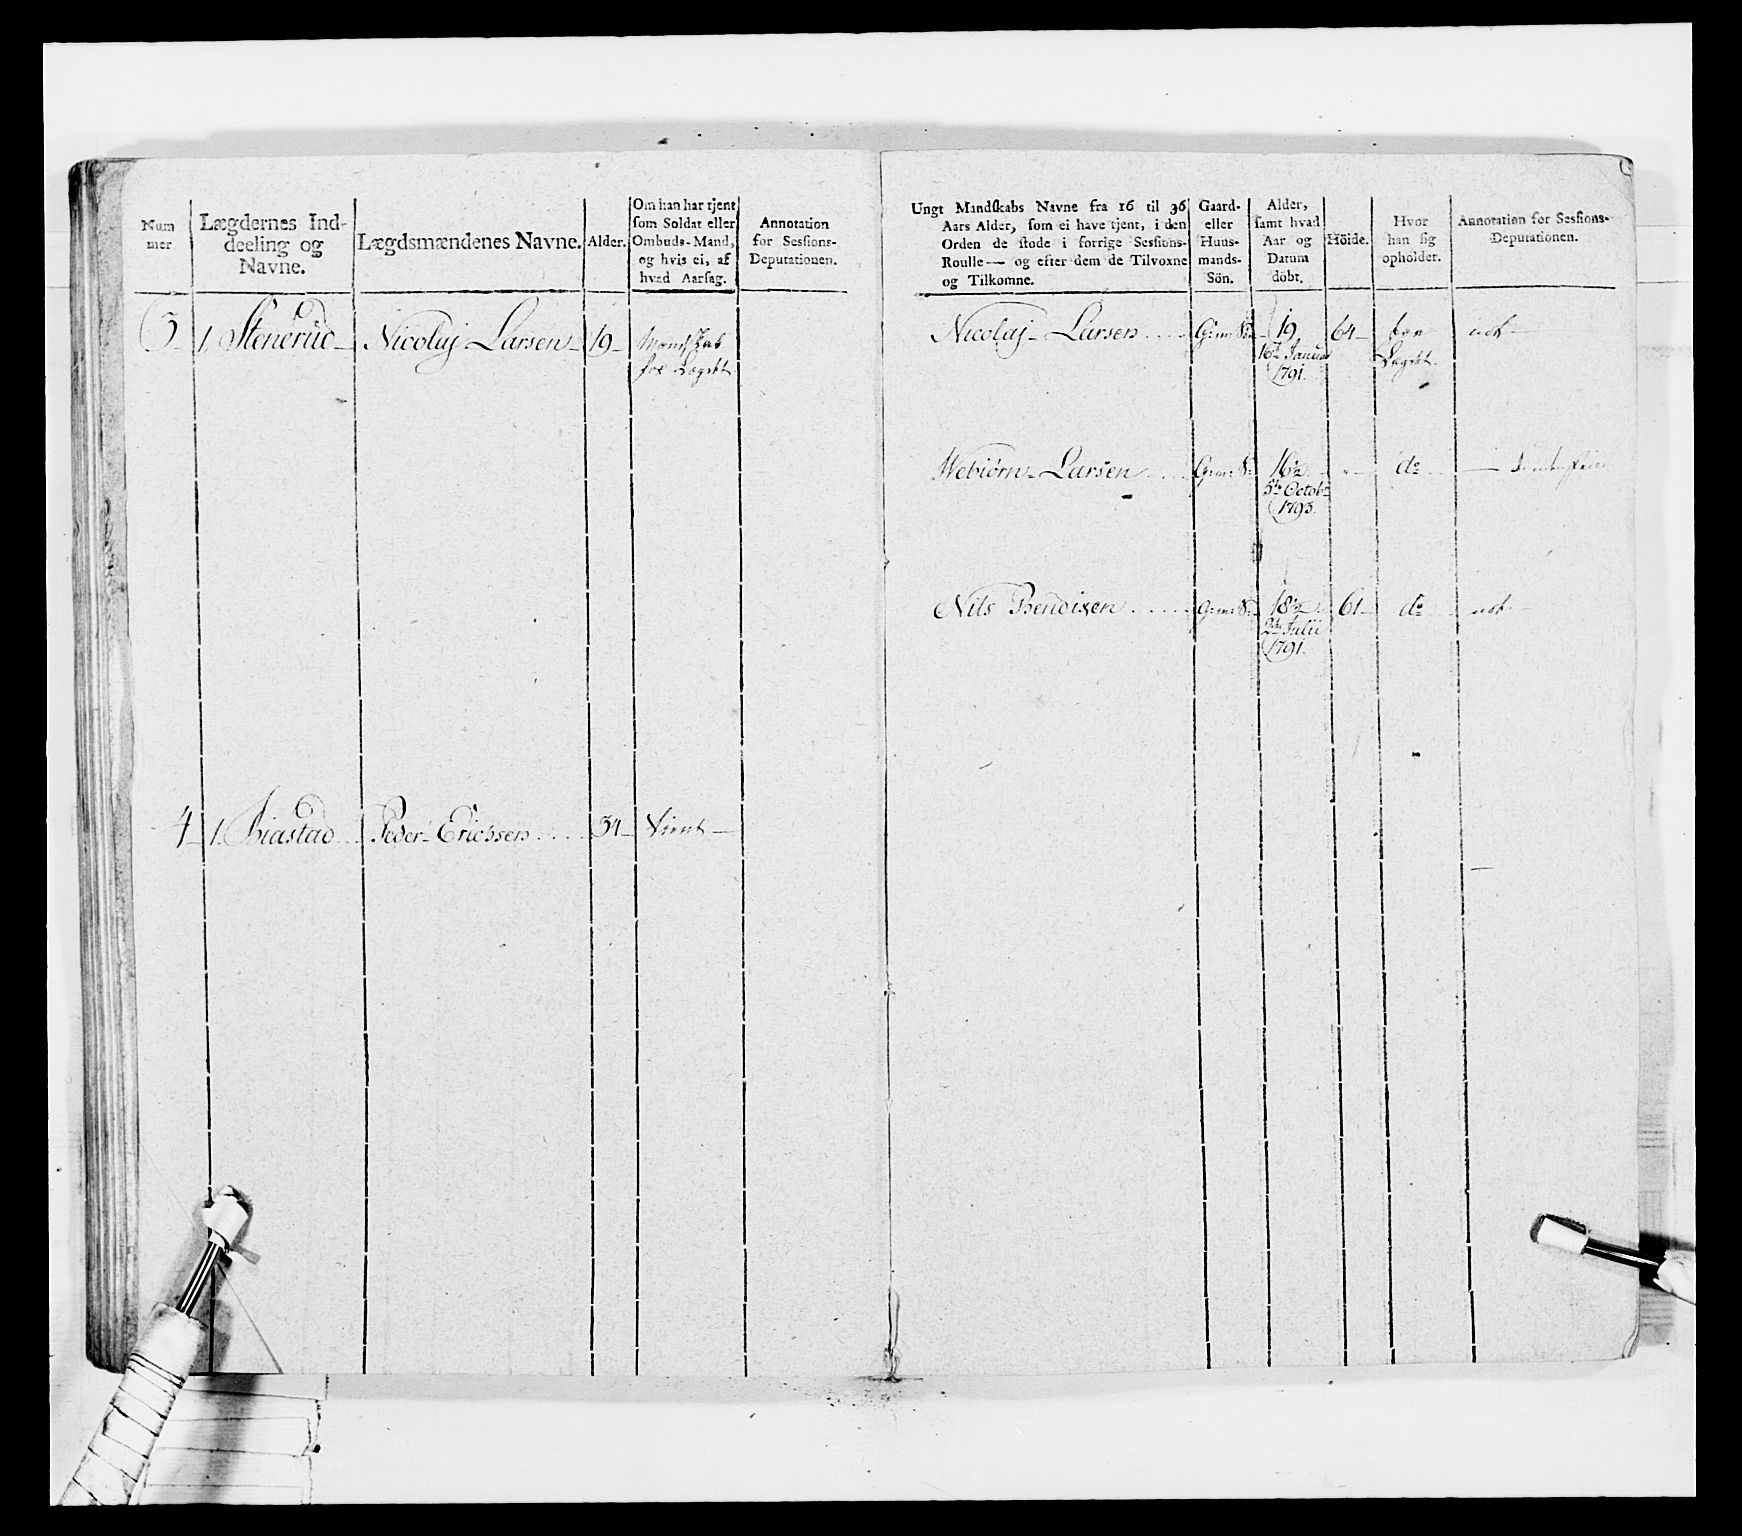 Num
mer
Lægdernes Ind-
deeling og
Navne.
Lægdsmændenes Navne.
Alder.
Om han har tjent
som Soldat eller
Ombuds-Mand,
og hvis ei, af
hvad Aarsag.
Annotation
for Sessions-
Deputationen.
3 1. Stenerud Nicolaj Larsen 19
Mandskab
for Lægdet
4 1. Peder Erichsen 34 tient
Ungt Mandskabs Navne fra 16 til 36
Aars Alder, som ei have tjent, i den
Orden de stode i forrige Sessions-
Roulle — og efter dem de Tilvoxne
og Tilkomne.
Gaard-
eller
Huus-
mands-
Sön.
Alder,
samt hvad
Aar og
Datum
döbt.
Höide.
Hvor
han sig
opholder.
Annotation for Sessions-
Deputationen.
Nicolaj Larsen G:m: S: 19 64
16de Januar
1791. Lægdet
Webiørn Larsen G:m: S: 16½ " do
5te Octobr
1793.
Nils Bendixen G:m: S: 18½ 61 do
Julii
1791.